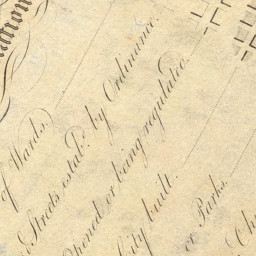 nation
of Wards.
Streets estabd. by Ordinance.
Opened or being regulated.
City built.
or Parks.
Ch